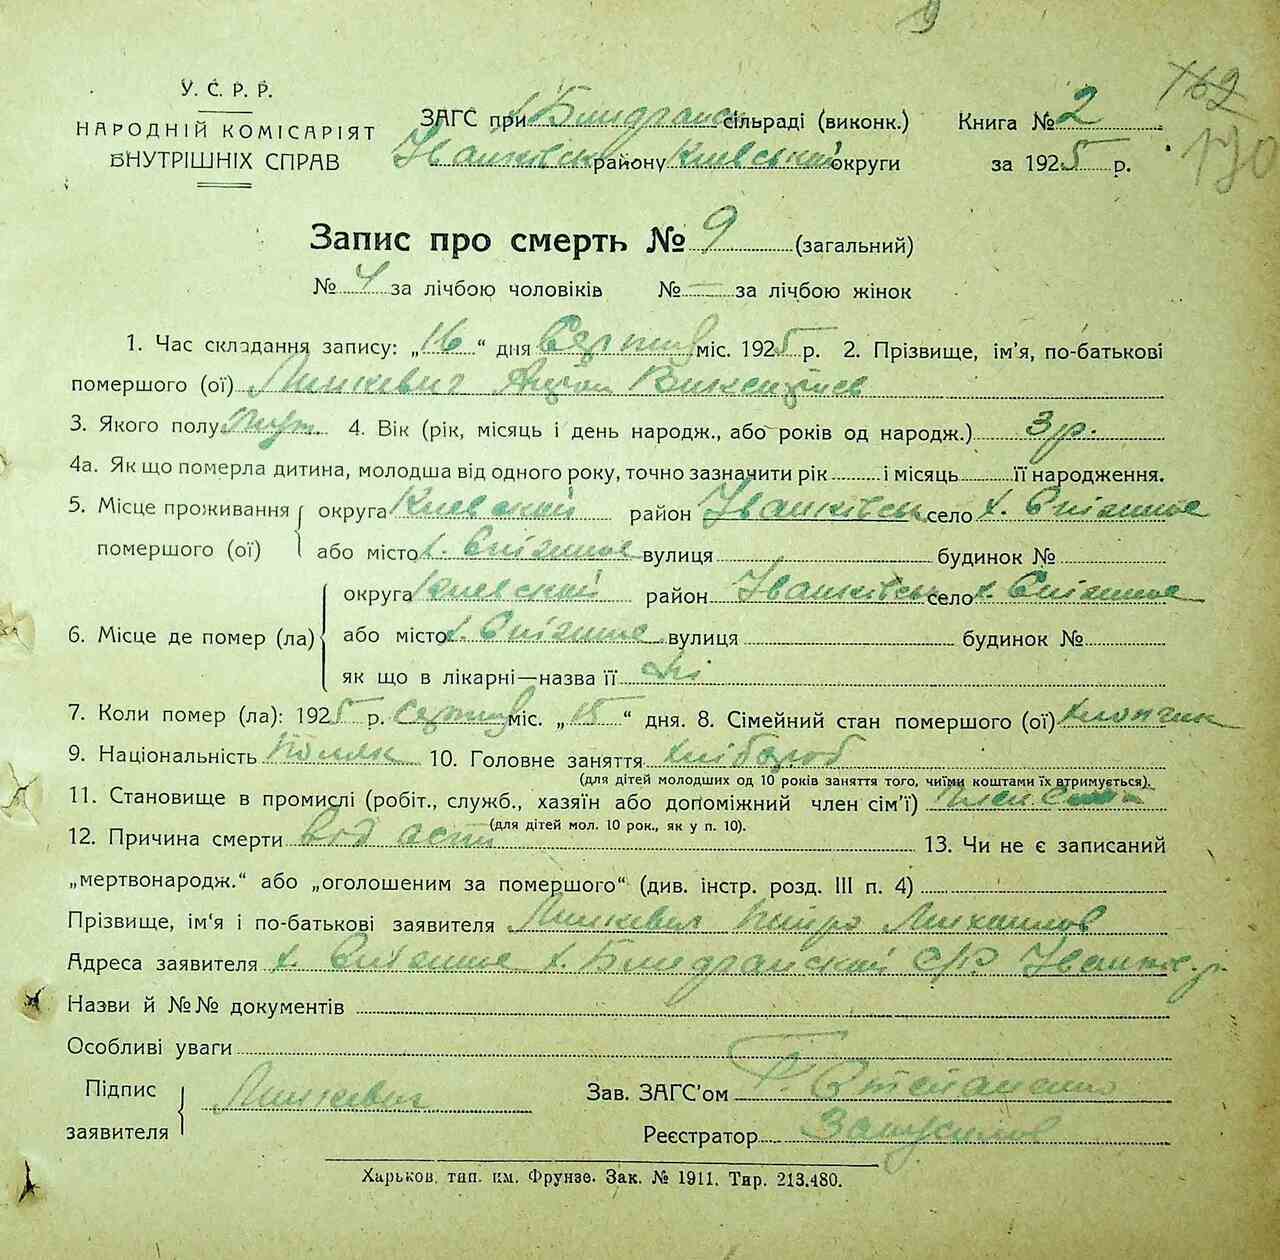 9
У. С. Р. Р.
НАРОДНІЙ КОМІСАРІЯТ
ВНУТРІШНІХ СПРАВ
ЗАГС при сільраді (виконк.)
Іванківськ району Киевської округи
Книга № 2
за 1925 р.
162
170
Запис про смерть № 9 (загальний)
№ 4 за лічбою чоловіків № — за лічбою жінок
1. Час складання запису: „16“ дня Серпня міс. 1925 р. 2. Прізвище, ім'я, по-батькові
помершого (ої)
3. Якого полу 4. Вік (рік, місяць і день народж., або років од народж.) 3 р.
4а. Як що померла дитина, молодша від одного року, точно зазначити рік і місяць її народження.
5. Місце проживання помершого (ої) округа Киевской район Іванківськ село х.
або місто х. вулиця будинок №
6. Місце де помер (ла) округа Киевской район Іванківськ село х.
або місто х. вулиця будинок №
як що в лікарні—назва її
7. Коли помер (ла): 1925 р. Серпня міс. „15“ дня. 8. Сімейний стан помершого (ої) хлопчик
9. Національність Поляк 10. Головне заняття хлібороб
(для дітей молодших од 10 років заняття того, чиїми коштами їх втримується).
11. Становище в промислі (робіт., служб., хазяїн або допоміжний член сім'ї) член
(для дітей мол. 10 рок., як у п. 10).
12. Причина смерти від 13. Чи не є записаний
„мертвонародж.“ або „оголошеним за помершого“ (див. інстр. розд. III п. 4)
Прізвище, ім'я і по-батькові заявителя Михайлов
Адреса заявителя х. х. С/Р
Назви й №№ документів
Особливі уваги
Підпис
заявителя
Зав. ЗАГС'ом
Реєстратор
Харьков, тип. им. Фрунзе. Зак. № 1911. Тир. 213.480.